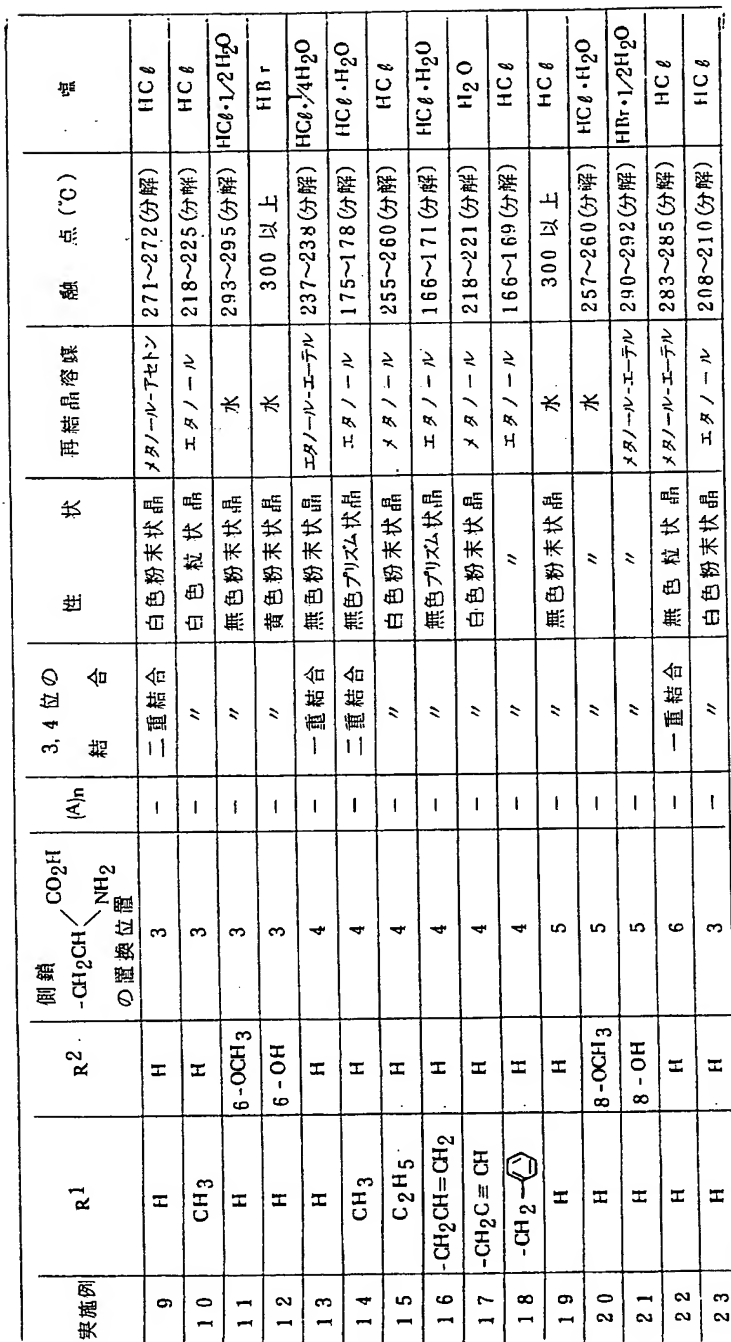 実施例 R1 R2 側鎖 -CH2CH CO2H NH2 の置換位置 (A)n 3,4位の結合 性状 再結晶溶媒 融点(℃) 塩
9 H H 3 − 二重結合 白色粉末状晶 メタノール-アセトン 271~272(分解) HCℓ
10 CH3 H 3 − 〃 白色粒状晶 エタノール 218~225(分解) HCℓ
11 H 6-OCH3 3 − 〃 無色粉末状晶 水 293~295(分解) HCℓ・1/2H2O
12 H 6-OH 3 − 〃 黄色粉末状晶 水 300以上 HBr
13 H H 4 − 一重結合 無色粉末状晶 エタノール-エーテル 237~238(分解) HCℓ・1/4H2O
14 CH3 H 4 − 二重結合 無色プリズム状晶 エタノール 175~178(分解) HCℓ・H2O
15 C2H5 H 4 − 〃 白色粉末状晶 メタノール 255~260(分解) HCℓ
16 -CH2CH=CH2 H 4 − 〃 無色プリズム状晶 エタノール 166~171(分解) HCℓ・H2O
17 -CH2C≡CH H 4 − 〃 白色粉末状晶 メタノール 218~221(分解) H2O
18 -CH2- H 4 − 〃 〃 エタノール 166~169(分解) HCℓ
19 H H 5 − 〃 無色粉末状晶 水 300以上 HCℓ
20 H 8-OCH3 5 − 〃 〃 水 257~260(分解) HCℓ・H2O
21 H 8-OH 5 − 〃 〃 メタノール-エーテル 290~292(分解) HBr・1/2H2O
22 H H 6 − 一重結合 無色粒状晶 メタノール-エーテル 283~285(分解) HCℓ
23 H H 3 − 〃 白色粉末状晶 エタノール 208~210(分解) HCℓ